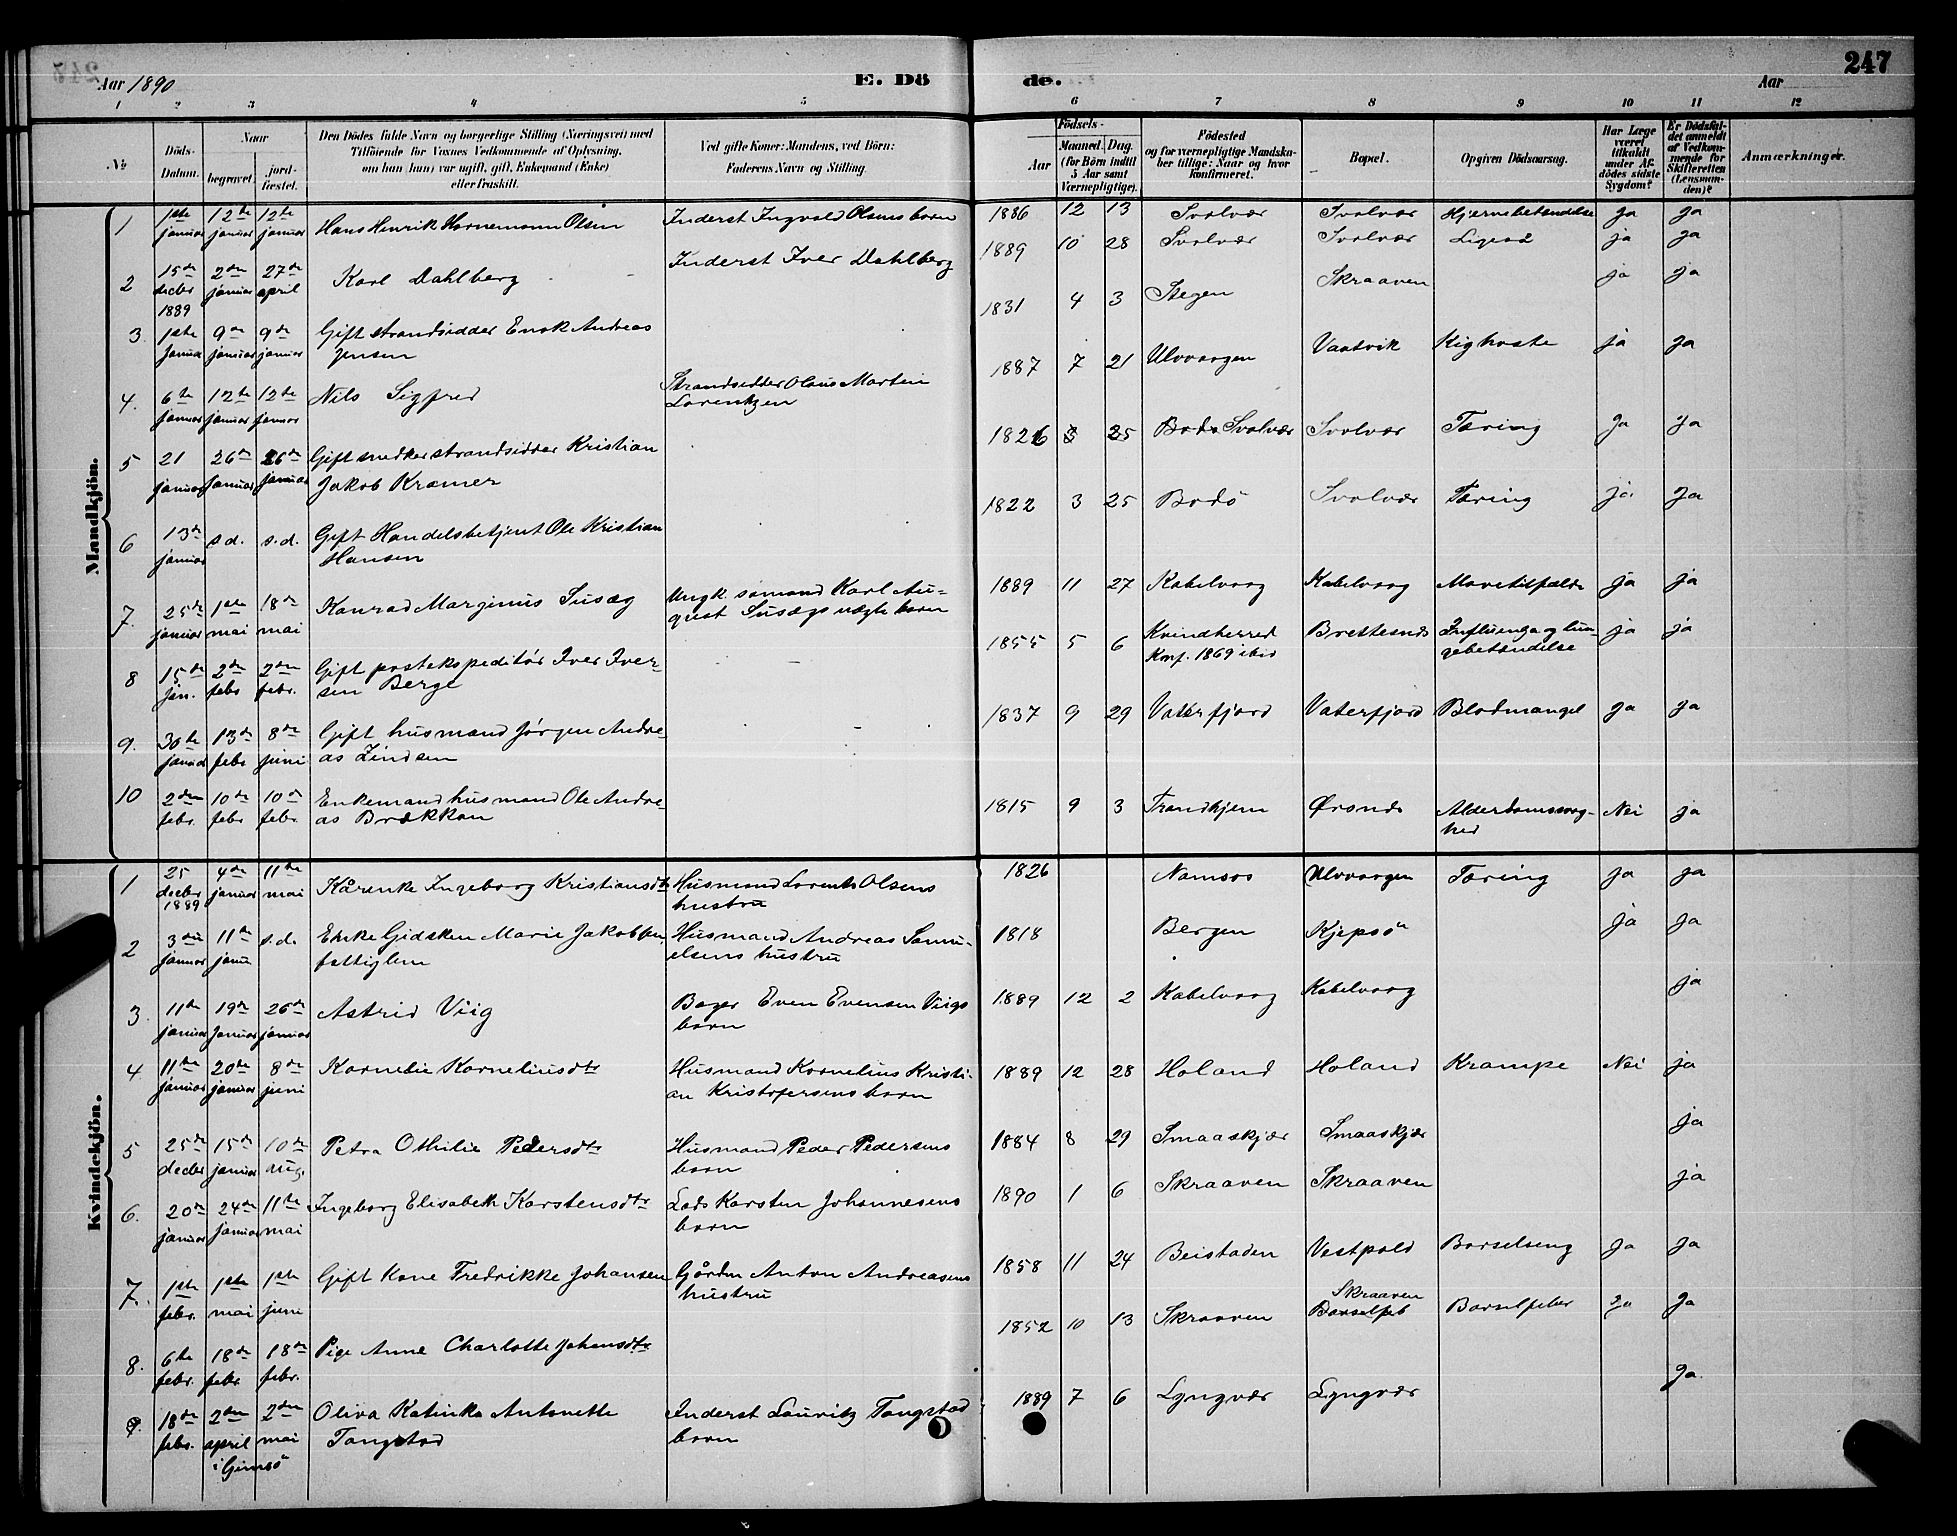 247
Aar 1890
E. Döde.
Aar
1 2 3 4 5 6 7 8 9 10 11 12
№
Döds-Datum.
Naar
begravet.
jordfæstet.
Den Dödes fulde Navn og borgerlige Stilling (Næringsvei) med
Tilföiende for Voxnes Vedkommende af Oplysning,
om han (hun) var ugift, gift, Enkemand (Enke)
eller fraskilt.
Ved gifte Koner: Mandens, ved Börn:
Faderens Navn og Stilling.
Födsels-
Aar
Maaned. Dag.
(for Börn indtil
5 Aar samt
Værnepligtige).
Födested
og for værnepligtige Mandskaber tillige: Naar og hvor
konfirmeret.
Bopæl.
Opgiven Dödsaarsag.
Har Læge
været
tilkaldt
under Afdödes sidste
Sygdom?
Er Dödsfaldet anmeldt
af Vedkommende for
Skifteretten
(Lensmanden)?
Anmærkninger.
Mandkjön.
1 1ste januar 12te januar 12te januar Hans Henrik Hornemann Olsen Inderst Ingvald Olsens barn 1886 12 13 Svolvær Svolvær Hjernebetændelse Ja ja
2 15de decbr 1889 2den januar 27de april Karl Dahlberg Inderst Iver Dahlberg 1889 10 28 Svolvær Svolvær Ligesaa ja ja
3. 1ste Januar 9de januar 9de januar Gift strandsidder Enok Andreas
Jensen 1831 4 3 Stegen Skraaven ja ja
4. 6te januar 12te januar 12te januar Nils Sigfred Strandsidder Olaus Martin
Lorentzen 1887 7 21 Ulvvaagen Vaatvik Kighoste ja Ja
5 21 januar 26de Januar 26de januar Gift snedker strandsidder Kristian
Jakob Kramer 1826 3 25 Bodø Svolvær Svolvær Tæring Ja ja
6 13de januar s.d. s.d. Gift Handelsbetjent Ole Kristian
Hansen 1822 3 25 Bodö Svolvær Tæring ja Ja
7. 25de januar 1ste mai 18de mai Konrad Marginus Susæg Ungk. sömand Karl August Susægs uægte barn 1889 11 27 Kabelvaag Kabelvaag Mavetilfælde ja ja
8 15de jan. 2den febr 2den febr. Gift postekspeditör Iver Iversen Berge 1855 5 6 Kvindherred
Konf. 1869 ibid Brettesnes Influenza og lungebetændelse ja ja
9. 30te januar 13de febr 8de juni Gift husmand Jörgen Andreas Zindsen 1837 9 29 Vaterfjord Vaterfjord Blodmangel ja ja
10 2den febr. 10de febr 10de febr. Enkemand husmand Ole Andreas Brækkan 1815 9 3 Trondhjem Ørsnes Alderdomssvaghed Nei ja
Kvindekjön.
1 25 decbr 1889 4de januar 11te mai Kårenke Ingeborg Kristiansdtr Husmand Lorents Olsens
hustru 1826 Namsos Ulvvaagen Tæring ja ja
2 3die januar 11te janu s.d. Enke Gidsken Marie Jakobsen
fattiglem Husmand Andreas Samuelsens hustru 1818 Bergen Kjepsö ja ja
3. 11te januar 19de Januar 26de januar Astrid Viig Bager Even Evensen Viigs
barn 1889 12 2 Kabelvaag Kabelvaag ja
4. 11te januar 20de januar 8de juni Kornelie Korneliusdtr Husmand Kornelius Kristian Kristofersens barn 1889 12 28 Holand Holand Krampe Nei ja
5 25de decbr 15de januar 10de aug. Petra Othilie Pedersdtr Husmand Peder Pedersens
barn 1884 8 29 Smaaskjær Smaaskjær ja
6. 20de januar 24de januar 11te mai Ingeborg Elisabeth Karstensdtr Lods Karsten Johannesens
barn 1890 1 6 Skraaven Skraaven ja
7. 1ste febr. 1ste mai 1ste juni Gift Kone Fredrikke Johansen Gårdm Anton Andreasens
hustru 1858 11 24 Beistaden Vestpold Barselseng Ja ja
8. 6te febr. 18de febr 18de febr. Pige Anne Charlotte Johansdtr. 1852 10 13 Skraaven Skraaven
Barselfeb Barselfeber Ja Ja
9. 18de febr. 2den april i Gimsö 2den mai Oliva Katinka Antonette
Tangstad Inderst Lauritz Tangstad
barn 1889 7 6 Lyngvær Lyngvær Ja